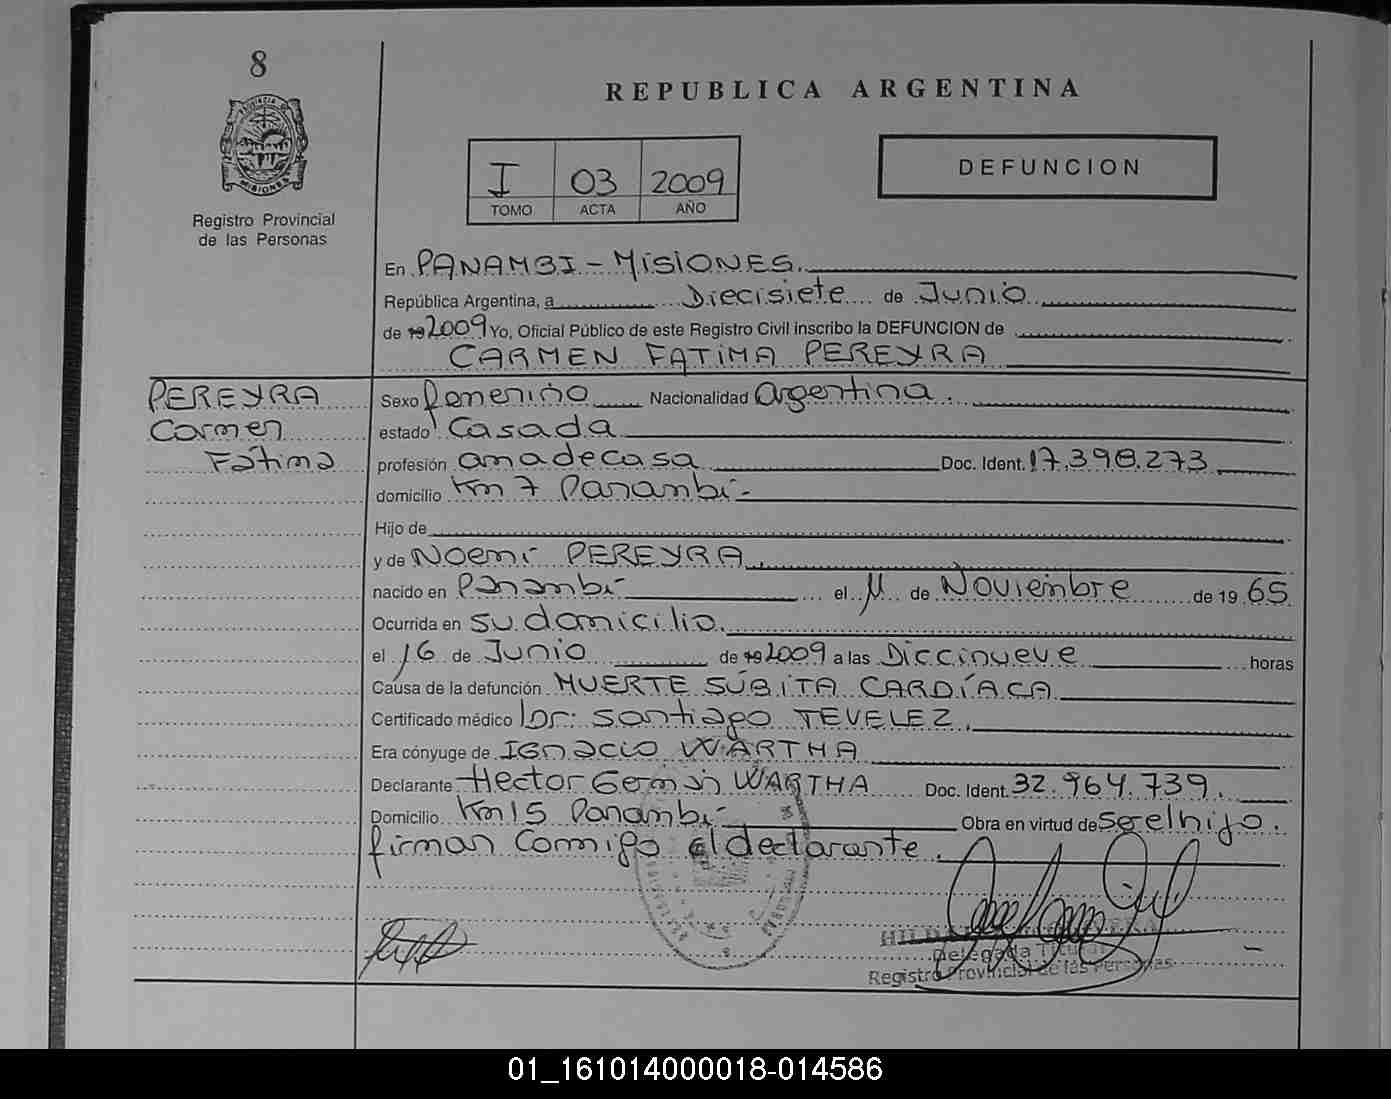 8
REPUBLICA ARGENTINA
MISIONES
Registro Provincial
de las Personas
I 03 2009
TOMO ACTA AÑO
DEFUNCION
En PANAMBI - MISIONES.
República Argentina, a Diecisiete de Junio
de 19 2009 Yo, Oficial Público de este Registro Civil inscribo la DEFUNCION de
CARMEN FATIMA PEREYRA
PEREYRA
Carmen
Fátima
Sexo femenino Nacionalidad Argentina.
estado Casada
profesión amadecasa Doc. Ident. 17.398.273
domicilio Km 7 Panambí-
Hijo de
y de Noemí PEREYRA
nacido en Panambí el 11 de Noviembre de 19 65
Ocurrida en su domicilio.
el 16 de Junio de 19 2009 a las Diecinueve horas
Causa de la defunción MUERTE SÚBITA CARDÍACA
Certificado médico Dr: Santiago TEVELEZ.
Era cónyuge de IGnacio WARTHA
Declarante Hector German WARTHA Doc. Ident. 32.964.739.
Domicilio Km 15 Panambí- Obra en virtud de ser el hijo.
firman conmigo el declarante.
Delegada Titular
Registro Provincial de las Personas
01_161014000018-014586